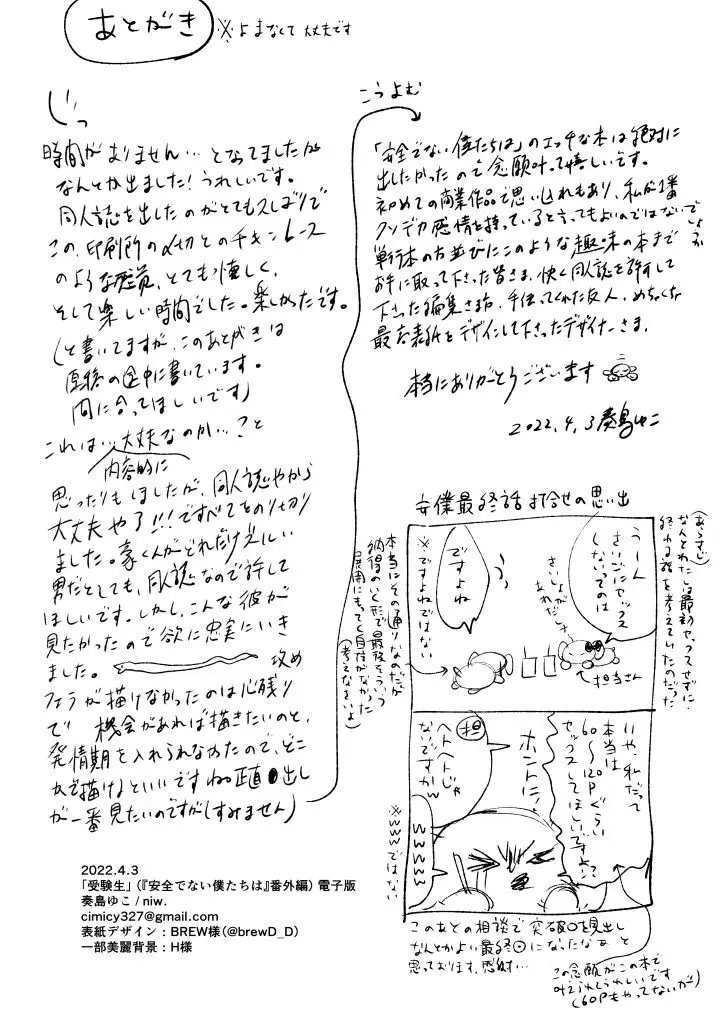 あとがき
※よまなくて大丈夫です
じっ
時間がありません…となってましたが
なんとか出ました！うれしいです。
同人誌を出したのがとてもひさしぶりで
この、印刷所の〆切とのチキンレース
のような感覚、とても懐しく、
そして楽しい時間でした。楽しかったです。
(と書いてますが、このあとがきは
原稿の途中に書いています。
間に合ってほしいです)
これは…大丈夫なのか…？と
内容的に
思ったりもしましたが、同人誌やから
大丈夫や了!!!ですべてをのりきり
ました。豪くんがどれだけ
男だとしても、同人誌なので許して
ほしいです。しかし、こんな彼が
見たかったので欲に忠実にいき
ました。
攻め
フェラが描けなかったのは心残り
で 機会があれば描きたいのと、
発情期を入れられなかったので、どこ
かで描けるといいですね。
が一番見たいのですが(すみません)
こうよむ
「安全でない僕たちは」のエッチな本は絶対に
出したかったので念願叶って嬉しいです。
初めての商業作品で思い入れもあり、私が1番
クソデカ感情を持っていると言ってもよいのではないで
しょうか
単行本の方並びにこのような趣味の本まで
お手に取って下さった皆さま、快く同人誌を許して
下さった編集さま、手伝ってくれた友人、めちゃくちゃ
最高な表紙をデザインして下さったデザイナーさま、
本当にありがとうございます
2022.4.3 奏島ゆこ
安僕最終話打合せの思い出
(あらすじ)
なんとわたしは最初セックスせずに
終わる話を考えていたのだった
うーん
さいごにセックス
しないってのは
さいしょが
あれだしナ
←担当さん
うっ
ですよね
※ですよねではない
本当にその通りなのだが
納得のいく形で最後そういう
展開にもってく自信がなかった
(考えてるよ)
いや、私だって
本当は
60〜120Pぐらい
セックスしてほしいですよ？
ホントに!
担
ヘトヘトじゃ
ないですかw
wwww
※wwwではない
このあとの相談で突破口を見出し
なんとかよい最終回になったなぁと
思っております、感謝…
この念願がこの本で
叶えられうれしいです
(60Pもやってないが)
2022.4.3
「受験生」（『安全でない僕たちは』番外編）電子版
奏島ゆこ / niw.
cimicy327@gmail.com
表紙デザイン：BREW様（@brewD_D）
一部美麗背景：H様